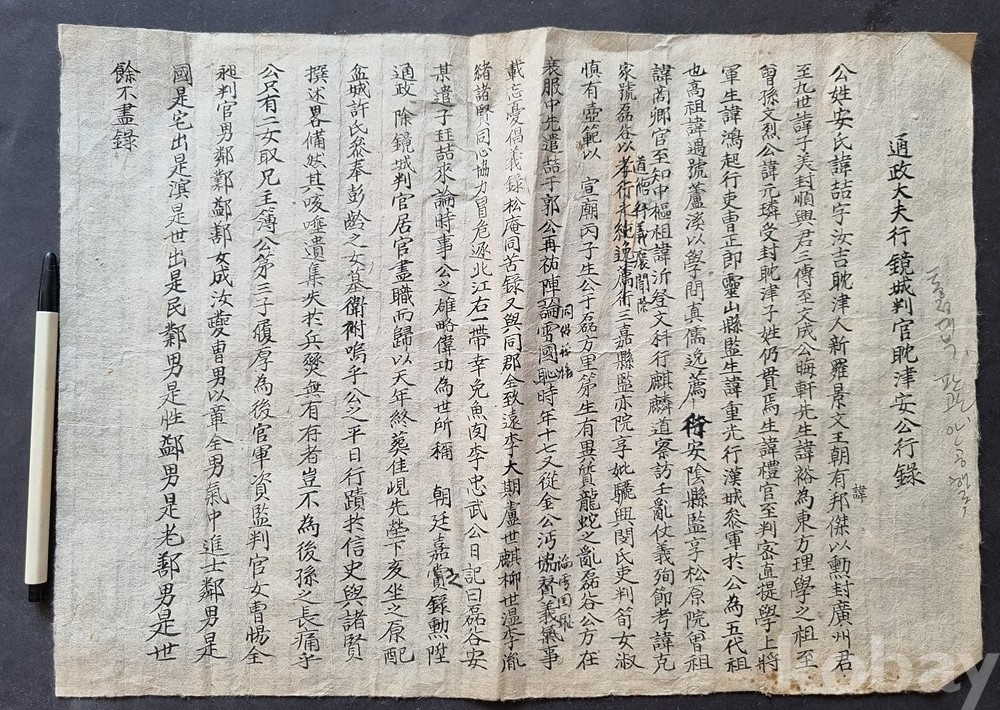 通政大夫行鏡城判官耽津安公行錄
公姓安氏諱喆字汝吉耽津人新羅景文王朝有邦傑以勳封廣州君
諱
至九世諱子美封順興君三傳至文成公晦軒先生諱裕為東方理學之祖至
曾孫文烈公諱元璘受封耽津子姓仍貫焉生諱禮官至判密直提學上將
軍生諱鴻起行吏曹正郎靈山縣監生諱重光行漢城參軍於公為五代祖
也高祖諱遇號蘆溪以學問真儒逸薦 行安陰縣監享松原院曾祖
諱 卿官至知中樞祖諱沂登文科行麒麟道察訪壬亂仗義殉節考諱克
家號磊谷以孝行 逸薦 三嘉縣監亦院享妣驪興閔氏吏判筍女淑
道德行義 聞除
慎有壼範以 宣廟丙子生公于磊方里第生有異質龍蛇之亂磊谷公方在
衰服中先遣喆于郭公再祐陣論雪國恥時年十七又從金公沔協贊義氣事
同 裕
論雪國恥
載忘憂倡義錄松庵同苦錄又與同郡全致遠李大期盧世麒柳世溫李胤
緒諸賢同心協力冒危逐北江右一帶幸免魚肉李忠武公日記曰磊谷安
某遣子 喆來論時事公之雄略偉功為世所稱 朝廷嘉賞之錄勳陞
通政 除鏡城判官居官盡職而歸以天年終葬佳峴先塋下亥坐之原配
盆城許氏參奉彭齡之女墓衛祔嗚乎公之平日行蹟於信史與諸賢
撰述畧備然其咳唾遺集失於兵燹無有存者豈不為後孫之長痛乎
公只有二女取兄主簿公第三子履厚為後官軍資監判官女曹暢全
昶判官男鄰鄭鄰鄯女成汝夔曹男以華全男氣中進士鄰男是
國是宅出是濱是世出是民鄭男是性鄰男是老鄯男是世
餘不盡錄
kobay